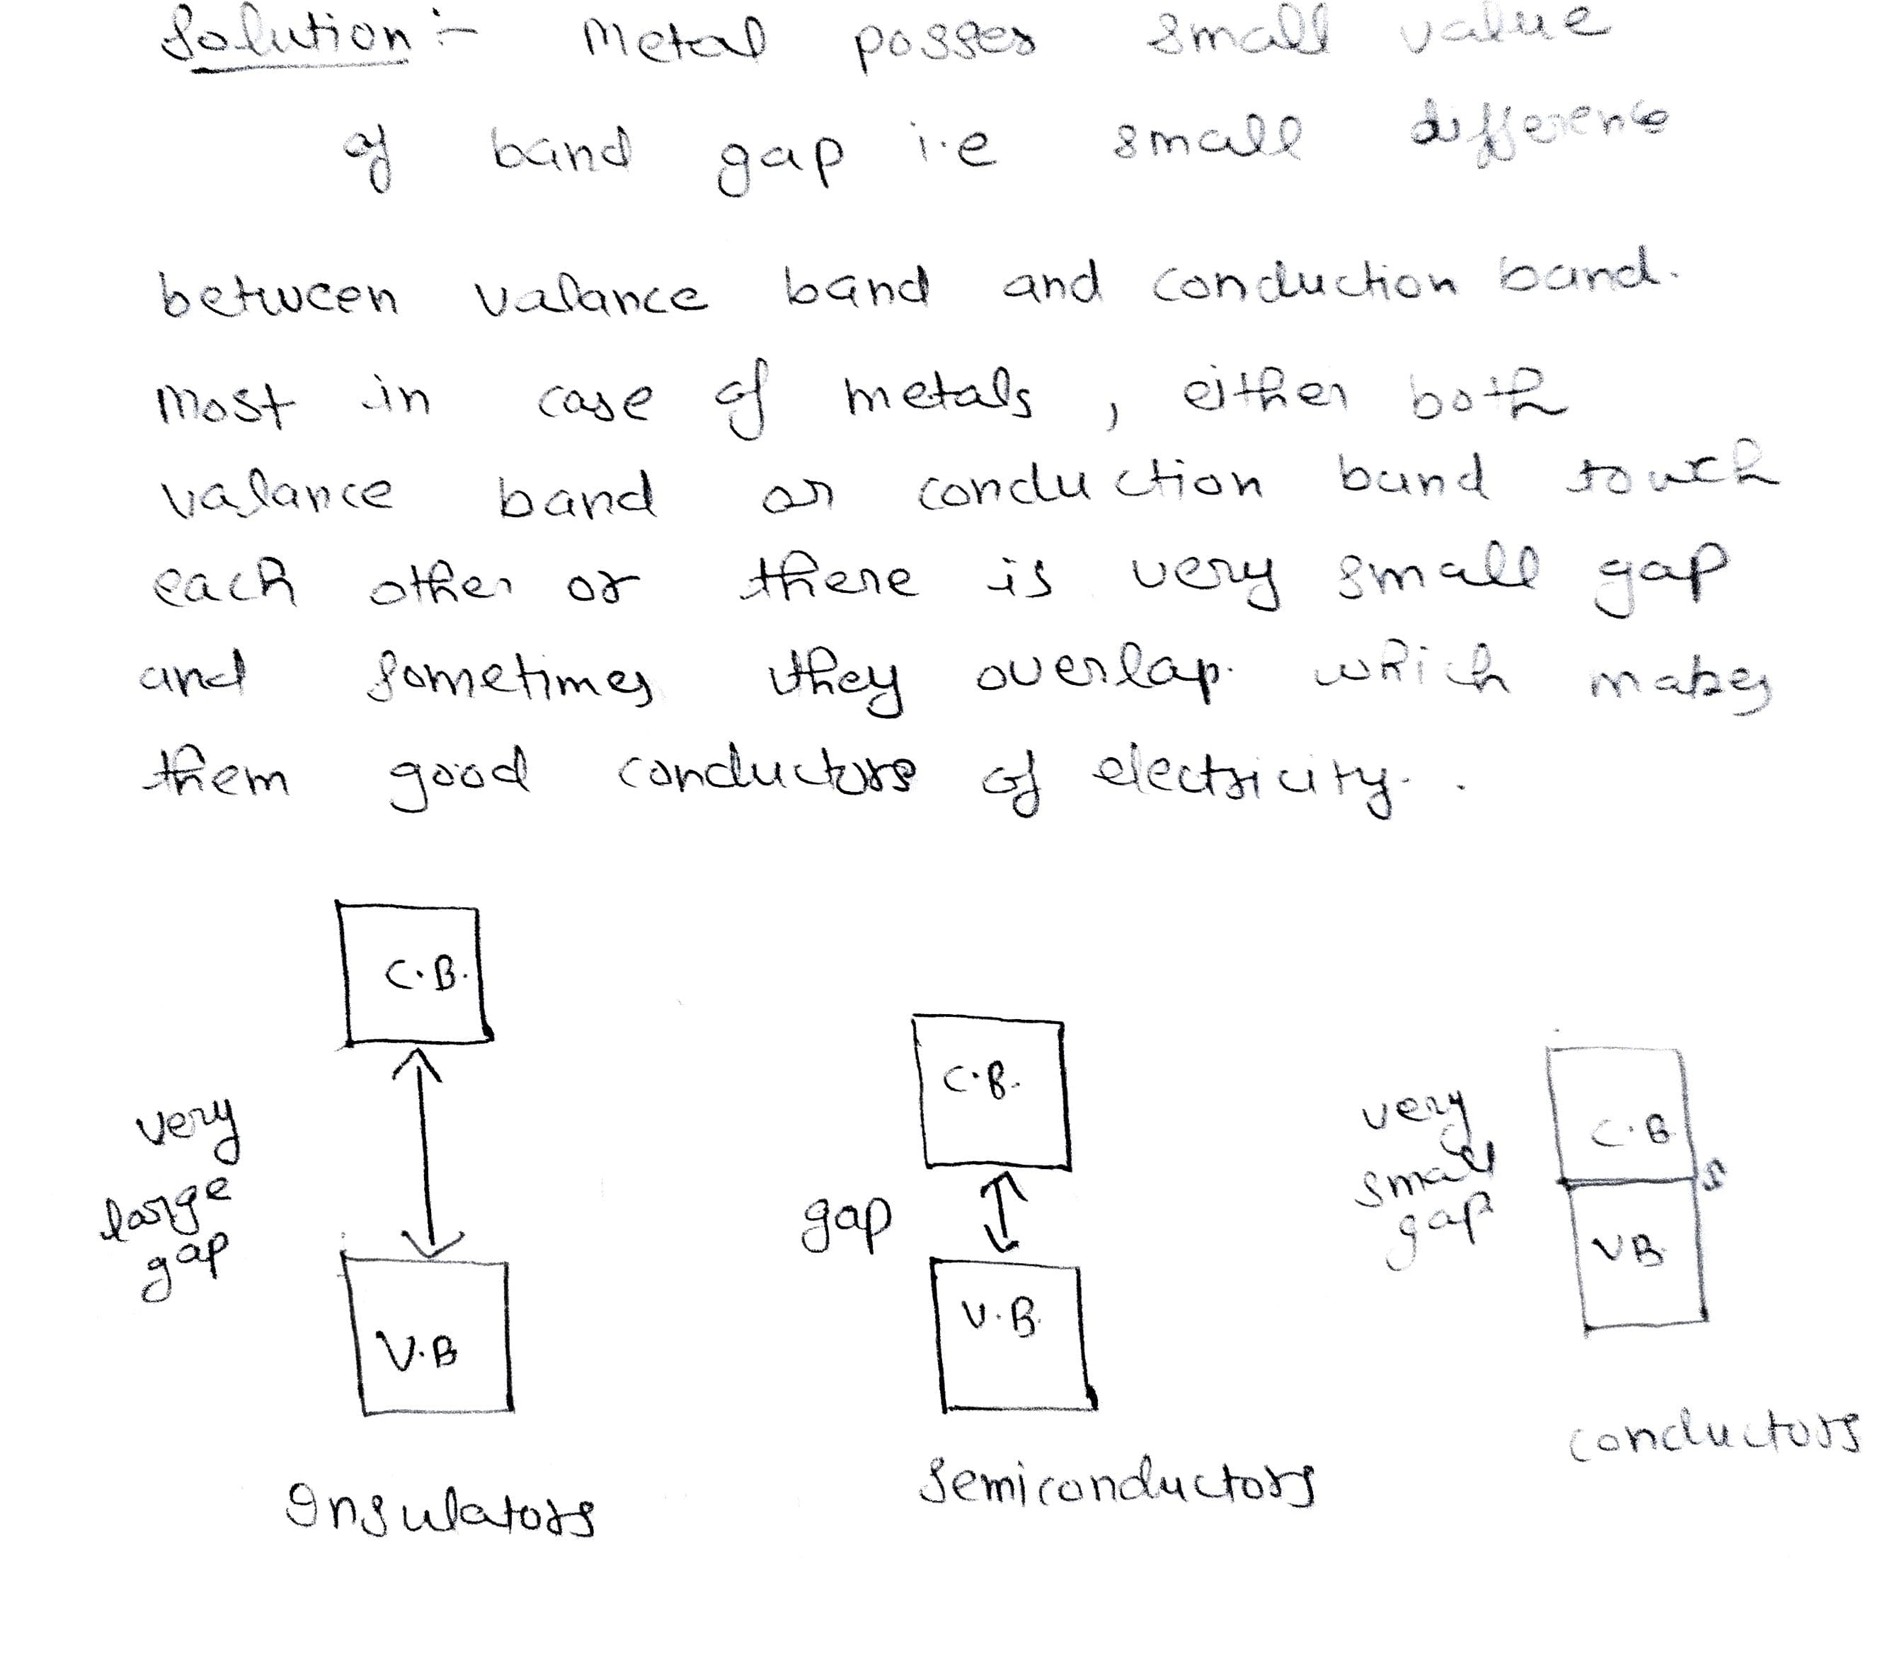 Solution :- Metal posses small value
of band gap i.e small difference
between valance band and conduction band.
Most in case of metals, either both
valance band or conduction band touch
each other or there is very small gap
and sometimes they overlap. which makes
them good conductors of electricity. .
C.B.
very
large
gap
V.B
Insulators
C.B.
gap
V.B.
Semiconductors
very
small
gap
C.B
V B.
conductors